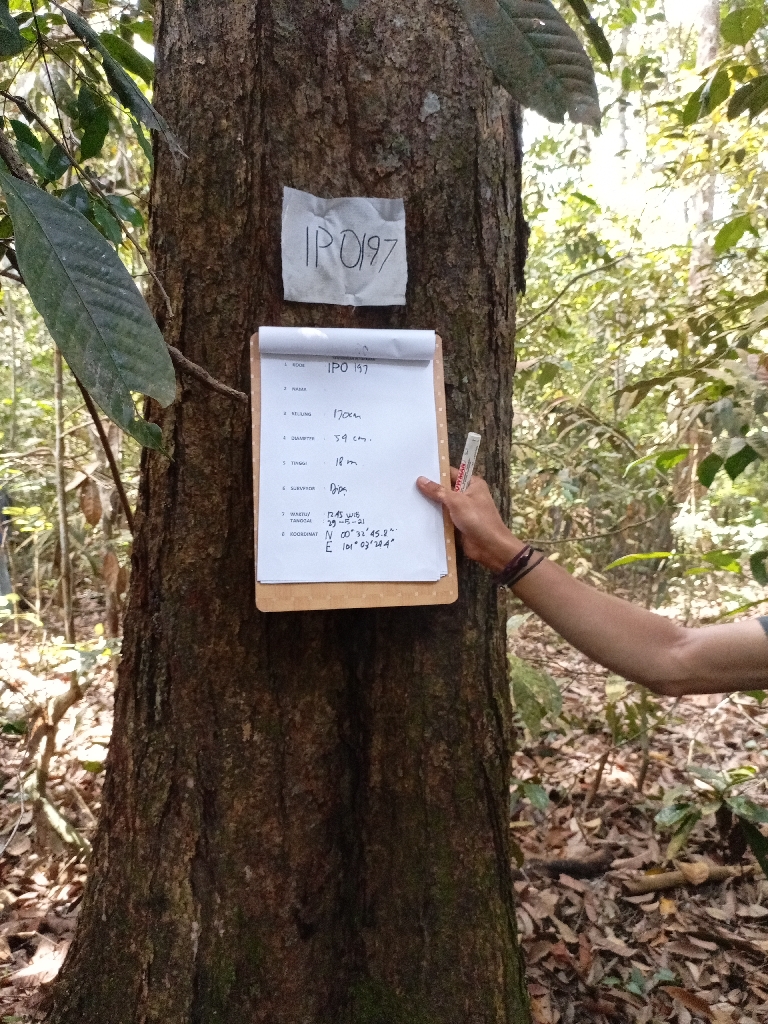 IPO197
1 KODE : IPO 197
2 NAMA :
3 KELILING : 170cm
4 DIAMETER : 54 cm.
5 TINGGI : 18 m
6 SURVEYOR :
7 WAKTU/ : 12.45 WIB
TANGGAL 29-5-21
8 KOORDINAT N 00°32'45.8"
E 101°03'29.4"